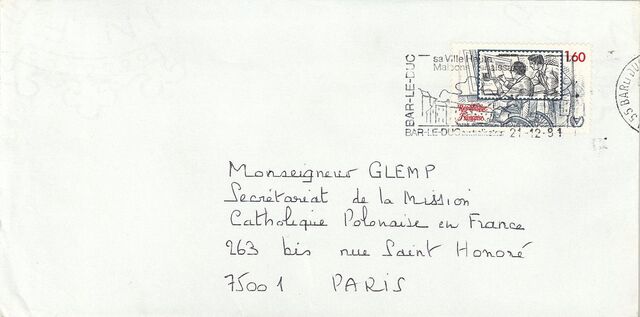 BAR-LE-DUC
sa Ville Haute
Maisons Renaissance
1,60
République
Française
BAR-LE-DUC 21-12.81
55 BAR-LE-DUC
Monseigneur GLEMP
Secrétariat de la Mission
Catholique Polonaise en France
263 bis rue Saint Honoré
75001 PARIS